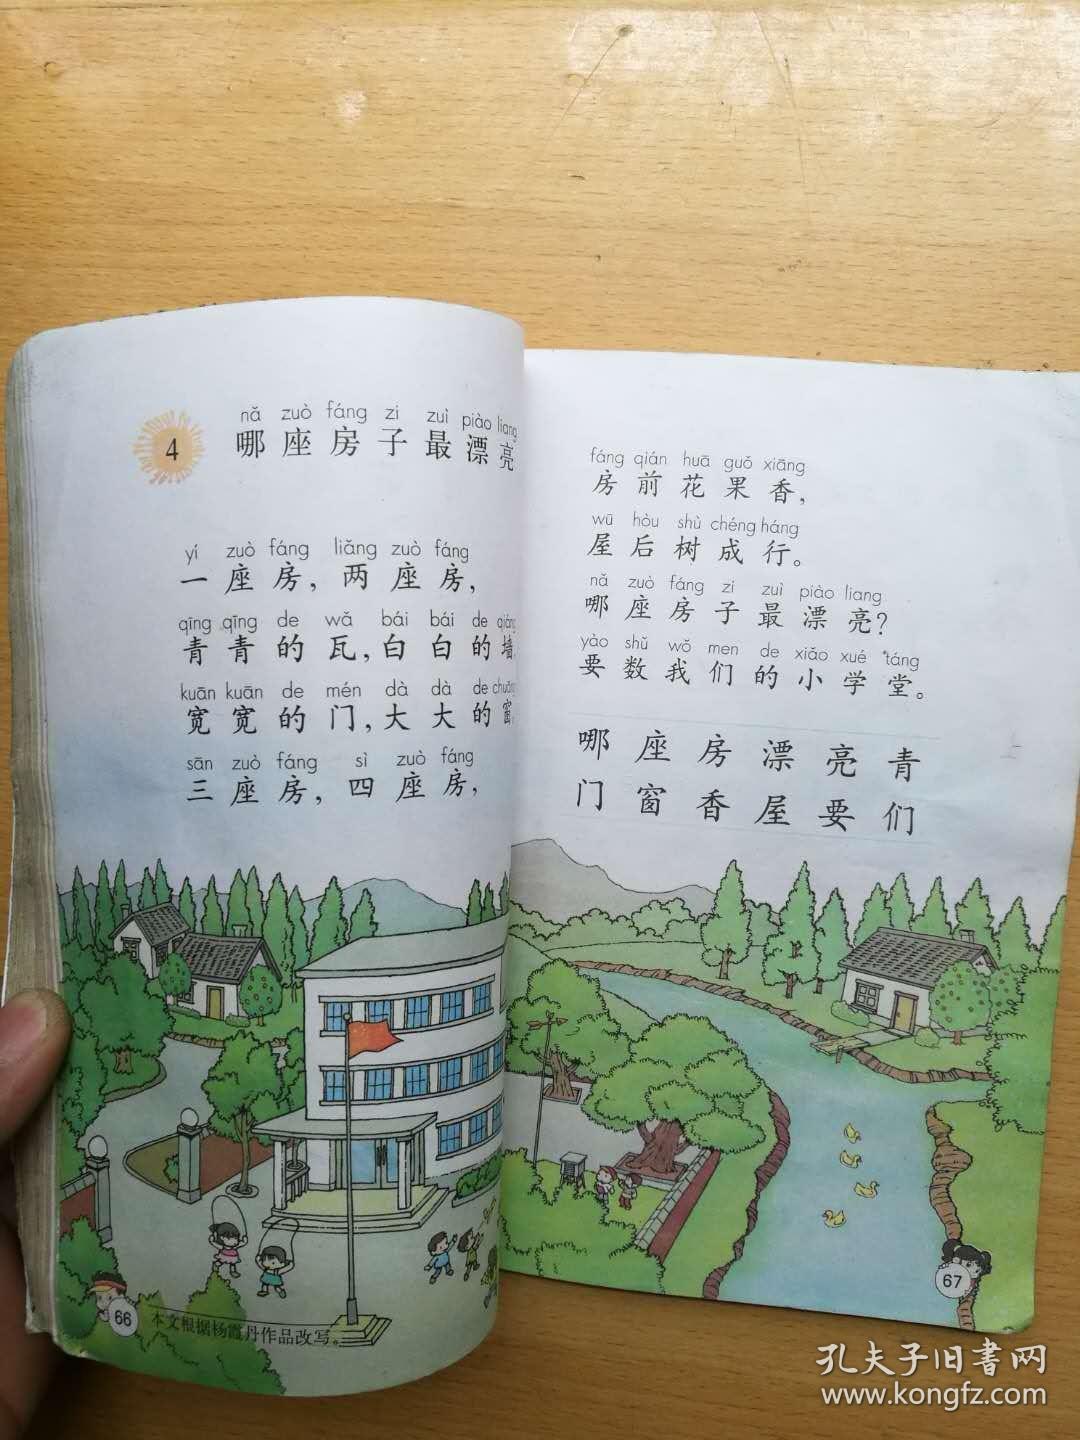 4
nǎ zuò fáng zi zuì piào liang
哪座房子最漂亮
yí zuò fáng liǎng zuò fáng
一座房，两座房，
qīng qīng de wǎ bái bái de qiáng
青青的瓦，白白的墙，
kuān kuān de mén dà dà de chuāng
宽宽的门，大大的窗。
sān zuò fáng sì zuò fáng
三座房，四座房，
66
本文根据杨霞丹作品改写。
fáng qián huā guǒ xiāng
房前花果香，
wū hòu shù chéng háng
屋后树成行。
nǎ zuò fáng zi zuì piào liang
哪座房子最漂亮？
yào shǔ wǒ men de xiǎo xué táng
要数我们的小学堂。
哪座房漂亮青
门窗香屋要们
67
孔夫子旧書网
www.kongfz.com